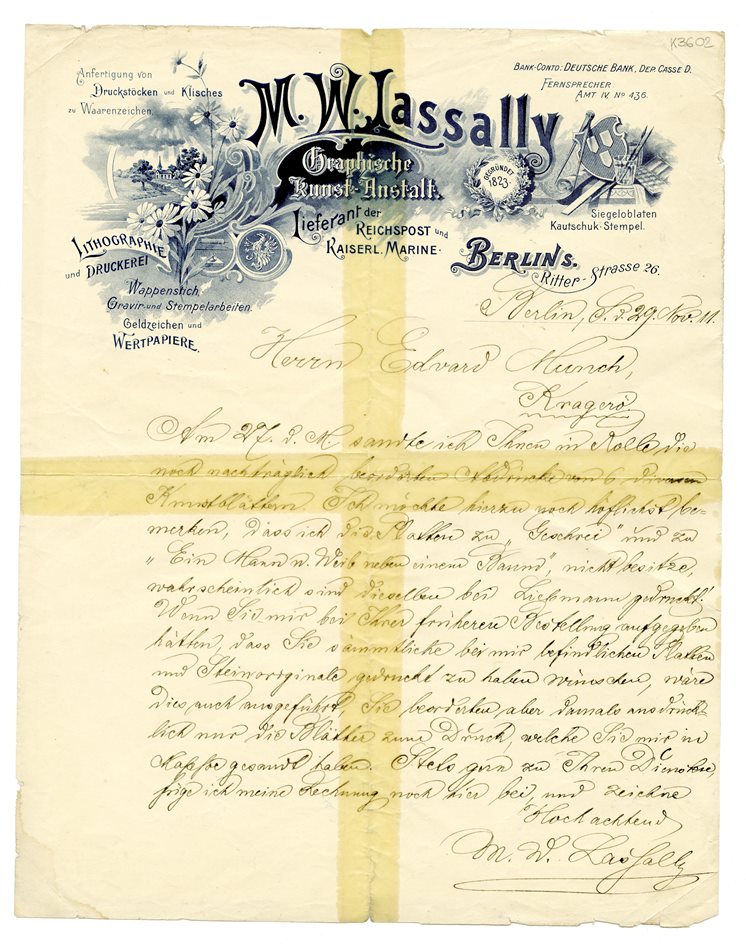 K3602
Anfertigung von
Druckstöcken und Klisches
zu Waarenzeichen.
M. W. Lassally
Graphische
Kunst-Anstalt.
Lieferant der
Reichspost und
Kaiserl. Marine.
Bank-Conto: Deutsche Bank, Dep. Casse D.
Fernsprecher
Amt IV. No 436.
Gegründet
1823.
Siegeloblaten
Kautschuk-Stempel.
Lithographie
und Druckerei
Wappenstich,
Gravir- und Stempelarbeiten.
Geldzeichen und
Wertpapiere.
Berlin S.
Ritter-Strasse 26.
Berlin, S. d 29. Nov. 11.
Herrn Edvard Munch,
Kragerö
Am 27. d. M. sandte ich Ihnen in Rolle die
noch nachträglich beorderten Abdrucke von 6 diversen
Kunstblättern. Ich möchte hierzu noch höflichst be-
merken, dass ich die Platten zu „Geschrei" und zu
„Ein Mann u. Weib neben einem Baum", nicht besitze,
wahrscheinlich sind dieselben bei Liebmann gedruckt!
Wenn Sie mir bei Ihrer früheren Bestellung aufgegeben
hätten, dass Sie sämmtliche bei mir befindlichen Platten
und Steinoriginale gedruckt zu haben wünschen, wäre
dies auch ausgeführt, Sie beorderten aber damals ausdrück-
lich nur die Blätter zum Druck, welche Sie mir in
Mappe gesandt haben. Stets gern zu Ihren Diensten
füge ich meine Rechnung noch hier bei und zeichne
Hochachtend
M. W. Lassally